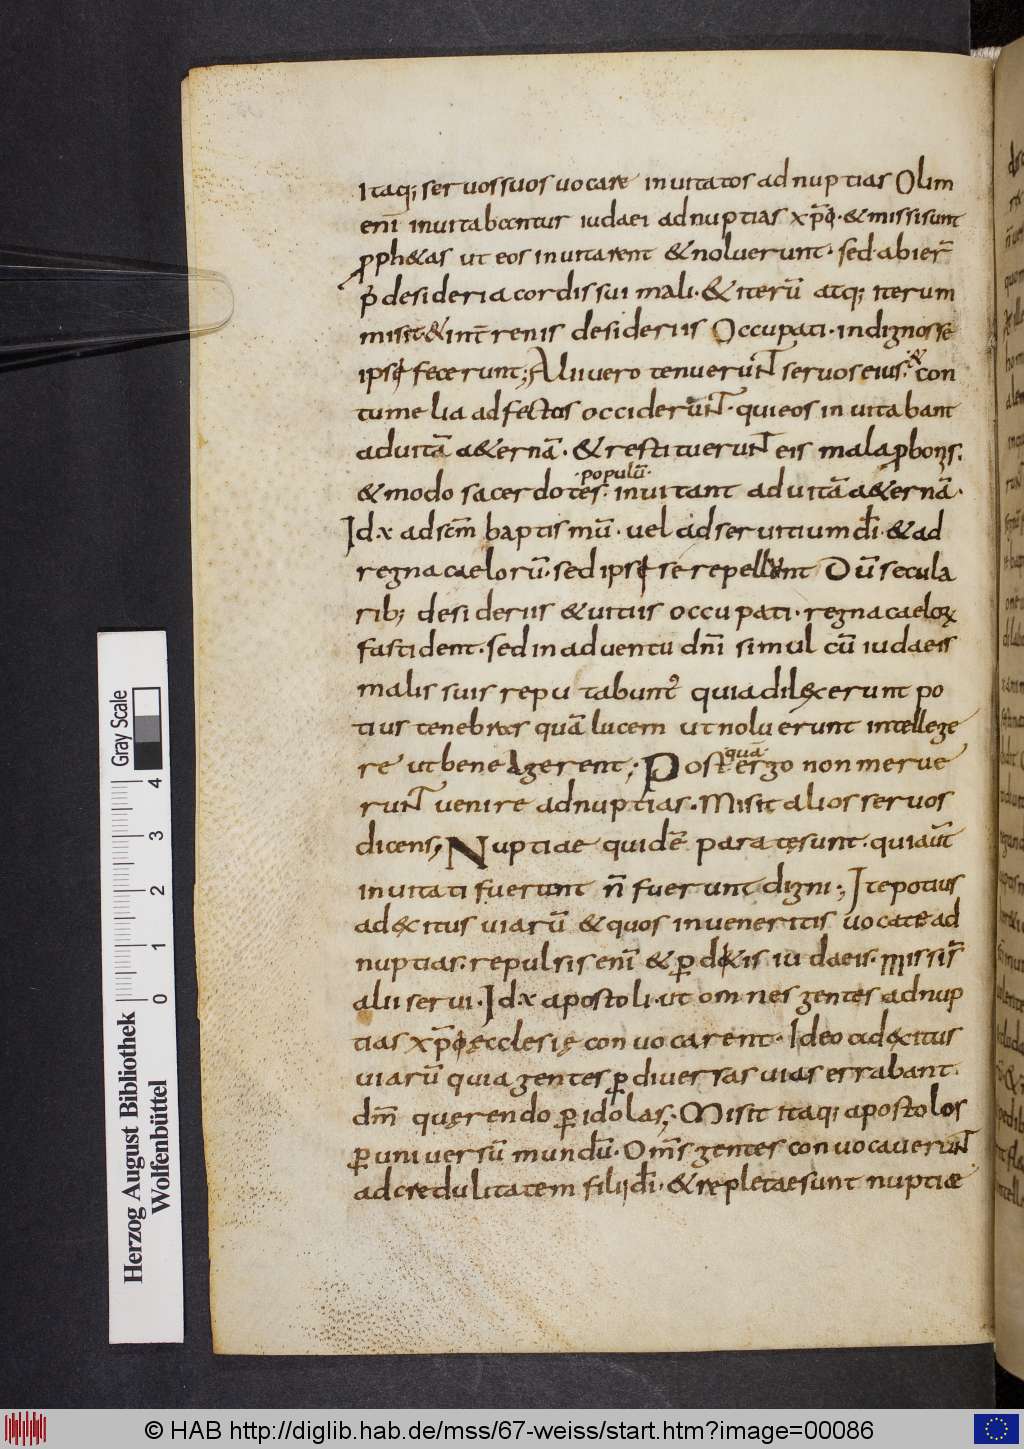 Itaq; seruos suos uocare inuitatos ad nuptias Olim
eni͞ inuitabantur iudaei ad nuptias xp͞i · & missi sunt
ꝓph&as ut eos inuitarent & noluerunt · sed abier͞
p͞ desideria cordis sui mali · & iteru͞ atq; iterum
misit · & in t͞renis desideriis Occupati · indignos se
ipsi fecerunt; Alii uero tenuerunt seruos eius · & con
tumelia adfectos occiderunt · qui eos inuitabant
ad uita͞ a&erna͞ · & restituerunt eis mala ꝓ bonis.
·populu͞·
& modo sacerdotes · inuitant ad uita͞ a&erna͞ ·
Id · x ad sc͞m baptismu͞ · uel ad seruitium d͞i · & ad
regna caeloru͞ · sed ipsi se repellunt Du͞ secula
rib; desideriis & uitiis occupati · regna caeloꝝ
fastident · sed in aduentu dn͞i simul cu͞ iudaeis
malis suis reputabunt᷒ quia dilęxerunt po
tius tenebras qua͞ lucem ut noluerunt intellege
re ut bene agerent; Post
·qua͞·
ergo non merue
runt uenire ad nuptias · Misit alios seruos
dicens; Nuptiae quide͞ paratę sunt · quia aut͞
inuitati fuerunt n͞ fuerunt digni; Ite potius
ad ęxitus uiaru͞ & quos inueneritis uocate ad
nuptias · repulsis eni͞ & ꝑd&is iudaeis · missi s͞
alii serui · Id · x apostoli · ut omnes gentes ad nup
tias xp͞i ęcclesię conuocarent · Ideo ad ęxitus
uiaru͞ quia gentes ꝑ diuersas uias errabant ·
dm͞ quęrendo ꝑ idolas; Misit itaq; apostolos
ꝑ uniuersu͞ mundu͞ · Om͞s gentes conuocauerunt
ad credulitatem filii d͞i · & repletae sunt nuptiae
Gray Scale
4
3
2
1
0
Herzog August Bibliothek
Wolfenbüttel
© HAB http://diglib.hab.de/mss/67-weiss/start.htm?image=00086